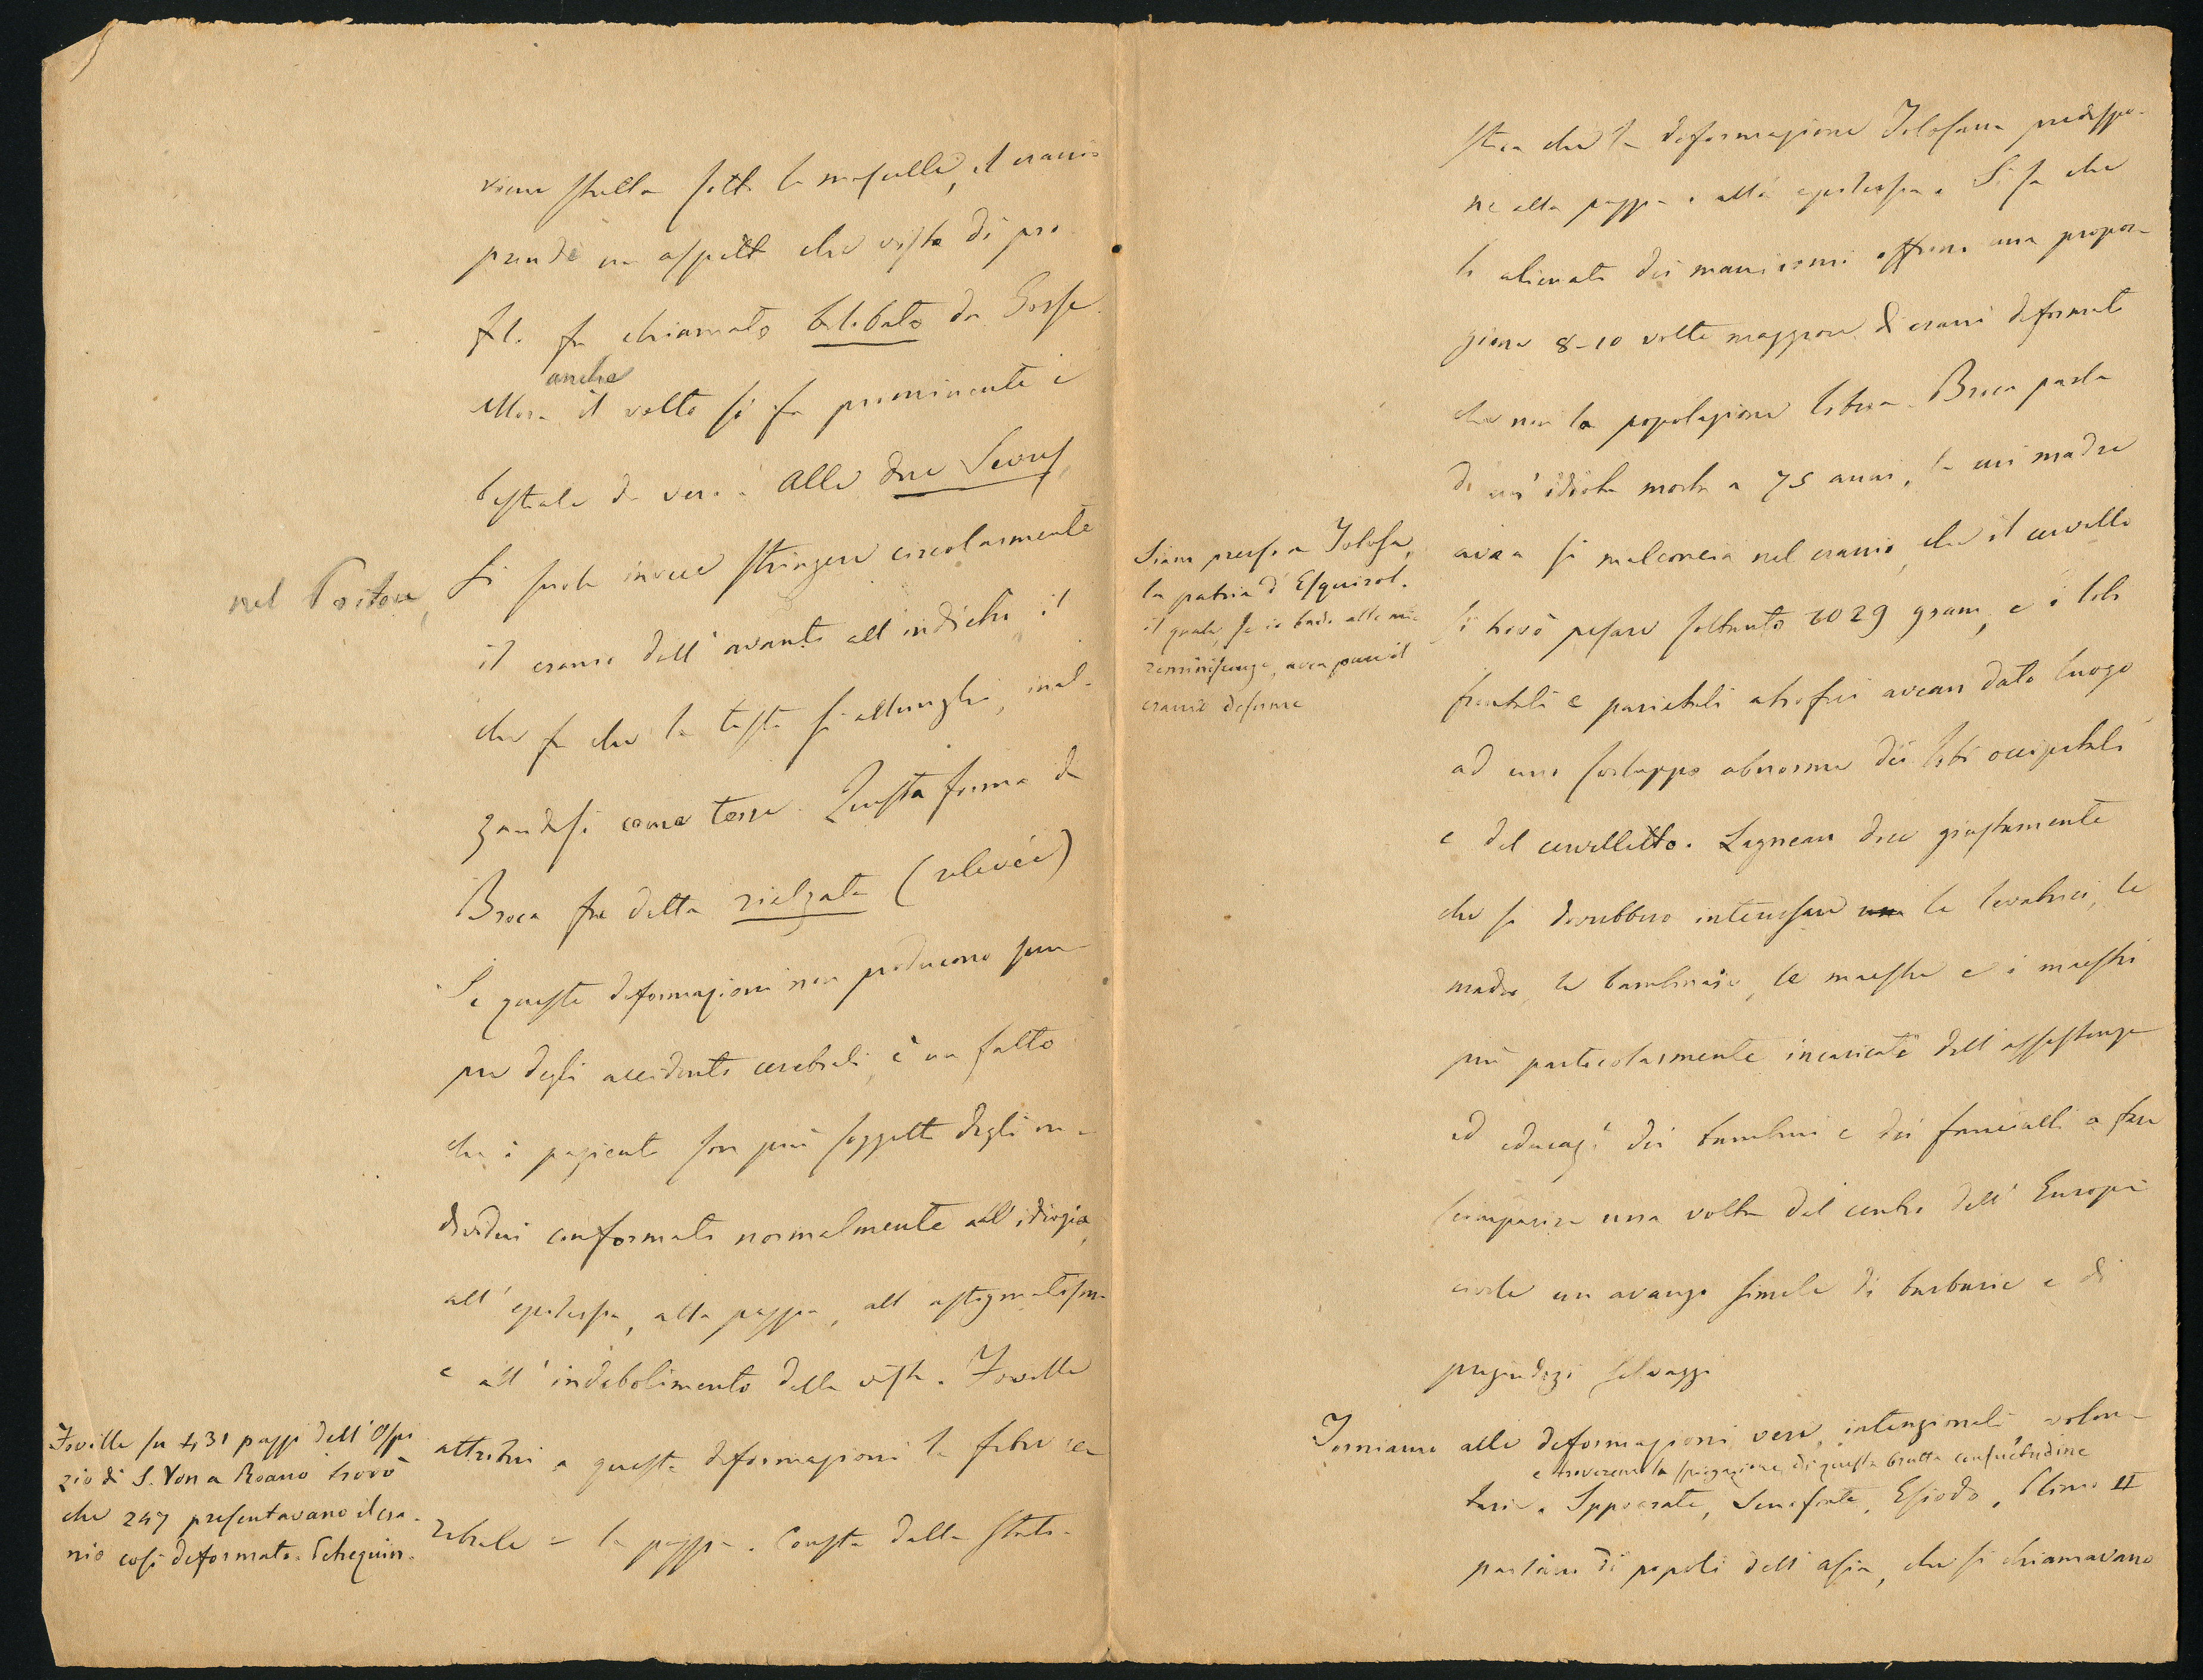 viene stretta sotto la mascella, il cranio
prende un aspetto che visto di pro
filo fu chiamato bilobato da Gosse.
anche
Allora il volto si fa prominente e
bestiale da vero. Alle due Sevres,
nel Poitou,
si suole invece stringere circolarmente
il cranio dall'avanti all'indietro il
che fa che la testa si allunghi, inal-
zandosi come torre. Questa forma da
Broca fu detta rialzata (relevée)
Se queste deformazioni non producono sem
pre degli accidenti cerebrali, è un fatto
che i pazienti son più soggetti degli in-
dividui conformati normalmente all'idiozia,
all'epilessia, alla pazzia, all'astigmatismo
e all'indebolimento della vista. Foville
attribuì a queste deformazioni la febbre ce
rebrale e la pazzia. Consta dalla stati-
Foville su 431 pazzi dell'Ospi
zio di S. Yon a Roano trovò
che 247 presentavano il cra-
nio così deformato.
stica che la deformazione Tolosana predispo-
ne alla pazzia e all'epilessia. Si sa che
li alienati dei manicomi offrono una propor-
zione 8-10 volte maggiore di crani deformati
che non la popolazione libera. Broca parla
di un'idiota morta a 75 anni, la cui madre
avea sì malconcia nel cranio, che il cervello
si trovò pesare soltanto 1029 gram, e i lobi
frontali e parietali atrofici avean dato luogo
ad uno sviluppo abnorme dei lobi occipitali
e del cervelletto. Lagneau dice giustamente
che si dovrebbero interessare le levatrici, le
madri, le bambinaie, le maestre e i maestri
più particolarmente incaricati dell'assistenza
ed educaze. dei bambini e dei fanciulli a fare
scomparire una volta dal centro dell'Europa
civile un avanzo simile di barbarie e di
pregiudizi selvaggi
Siam presso a Tolosa,
la patria d'Esquirol.
il quale, se io bado alle mie
reminiscenze, avea pure il
cranio deforme
Torniamo alle deformazioni vere, intenzionali volon-
e troveremo la spiegazione di questa brutta consuetudine
tarie. Ippocrate, Senofonte, Esiodo, Plinio II
parlano di popoli dell'Asia, che si chiamavano